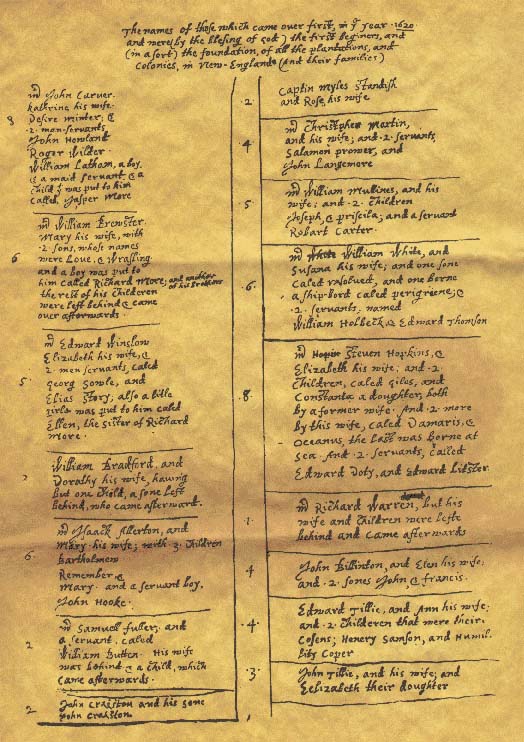 The names of those which came over first, in yᵉ year 1620
and were (by the blesing of god) the first beginers, and
(in a sort) the foundation, of all the plantations, and
Colonies, in New-England. (And their families)
8
mʳ John Carver.
kathrine his wife.
Desire minter; &
2. man-servants
John Howland
Roger Wilder.
William Latham, a boy.
& a maid servant, & a
child yᵗ was put to him
called, Jasper More
6
mʳ William Brewster.
Mary his wife, with
2. sons, whose names
were Love, & Wrasling
and a boy was put to
him called Richard More; and another of his brothers
the rest of his childeren
were left behind & came
over afterwards.
5
mʳ Edward Winslow
Elizabeth his wife, &
2 men servants, caled
georg Sowle, and
Elias Story; also a litle
girle was put to him caled
Ellen, the sister of Richard
More.
2
William Bradford, and
Dorothy his wife, having
but one child, a sone left
behind, who came afterward.
6
mʳ Isaack Allerton, and
Mary his wife; with 3. children
Bartholmew
Remember, &
Mary. and a servant boy.
John Hooke.
2
mʳ Samuell fuller; and
a servant, caled
William Butten. His wife
was behind & a child, which
came afterwards.
2
John Crakston and his sone
John Crakston
2
Captin Myles Standish
and Rose, his wife
4
mʳ Christpher Martin,
and his wife; and 2. servants,
Salamon prower, and
John Langemore
5
mʳ William Mullines, and his
wife; and 2. children
Joseph, & priscila; and a servant
Robart Carter.
6
mʳ White William White, and
Susana his wife; and one sone
caled resolved, and one borne
a ship-bord caled perigriene; &
2. servants, named
William Holbeck, & Edward Thomson
8
mʳ Steven Hopkins, &
Elizabeth his wife; and 2.
children, caled giles, and
Constanta a doughter, both
by a former wife. And 2. more
by this wife, caled Damaris, &
Oceanus, the last was borne at
sea. And 2. servants, called
Edward Doty, and Edward Litster.
1
mʳ Richard Warren, but his
wife and children were lefte
behind and came afterwards
4
John Billinton, and Elen his wife;
and 2. sones John, & francis.
4
Edward Tillie, and Ann his wife;
and 2. childeren that were their
cosens; Henery Samson, and Humil-
lity Coper
3
John Tillie, and his wife; and
Eelizabeth their doughter